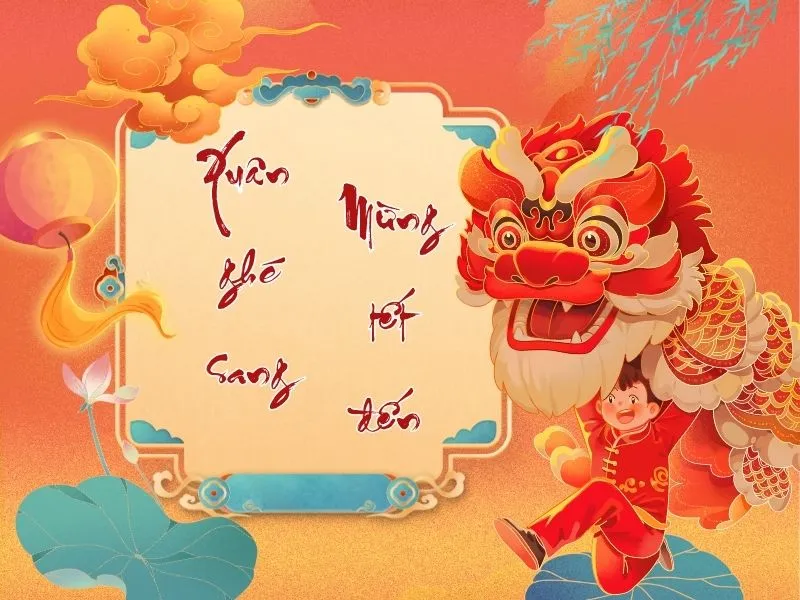 Xuân
ghé
sang
Mừng
tết
đến